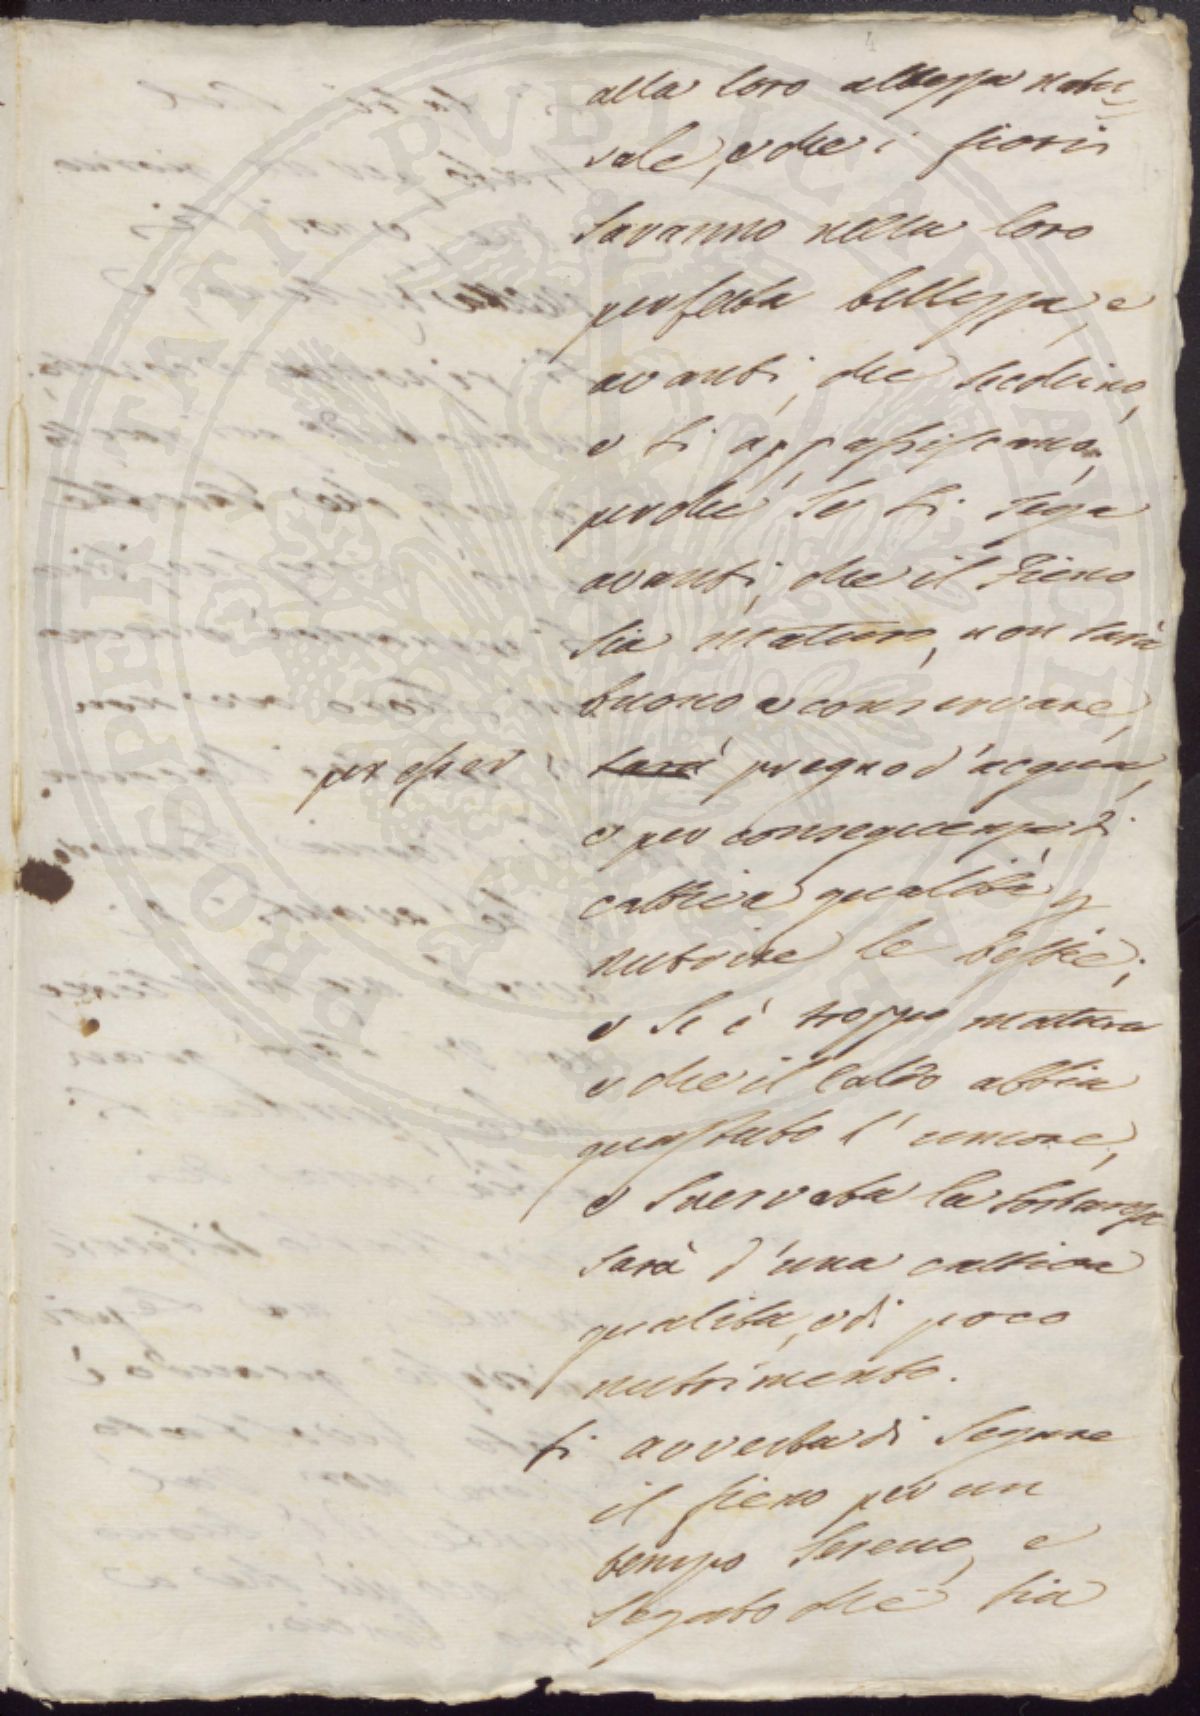 4
alla loro altezza natu=
rale, e che i fiori
saranno nella loro
perfetta bellezza, e
avanti, che secchino,
e si appassiscano,
perche se si sega
avanti, che il Fieno
sia maturo, non sarà
buono a conservare,
per esser sarà pregno d'acqua,
e per conseguenza di
cattiva qualità p
nutrire le bestie;
e se è troppo maturo
e che il caldo abbia
guastato l'umore,
e snervata la sostanza
sarà d'una cattiva
qualità, e di poco
nutrimento.
Si avverta di segare
il fieno per un
tempo sereno, e
segato che sia
PROSPERITATI PVBLICAE AVGENDAE